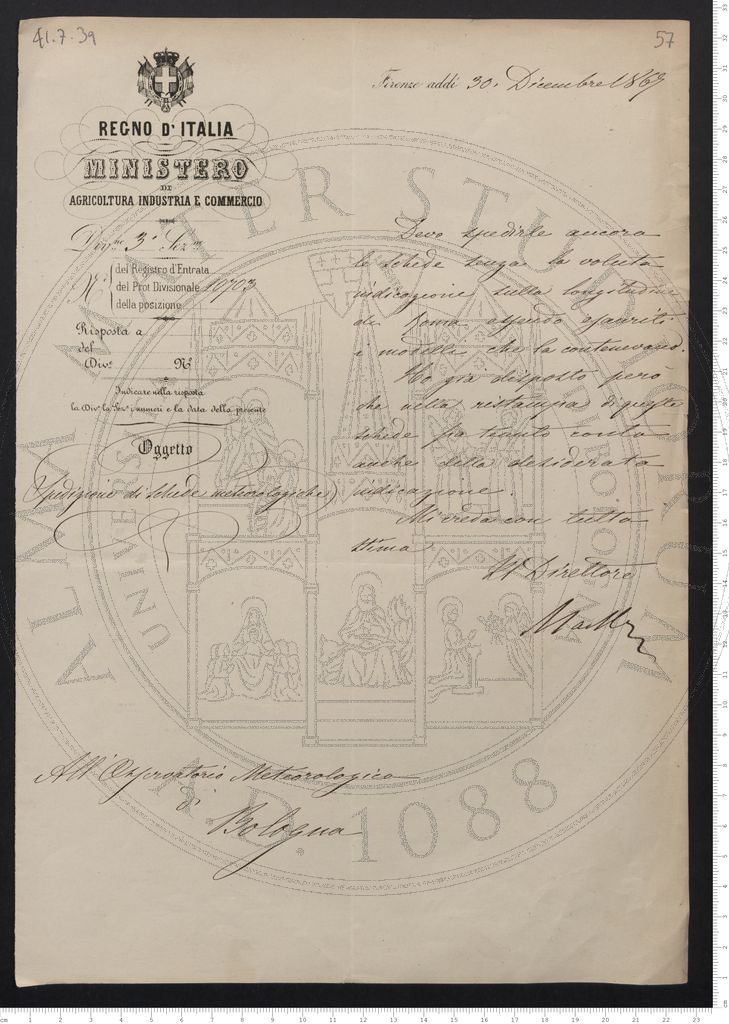 41.7.39
57
Firenze addì 30. Dicembre 186
REGNO D'ITALIA
MINISTERO
DI
AGRICOLTURA INDUSTRIA E COMMERCIO
Div.ne 3ª Sez.ne
del Registro d'Entrata
N.° del Prot Divisionale 10703
della posizione
Risposta a
del
Div.e N.°
Indicare nella risposta
la Div.e la Sez.e i numeri e la data della presente
Oggetto
Spedizione di schede meteorologiche
Devo spedirle ancora
le schede senza la voluta
indicazione sulla longitudine
di Roma essendo esauriti
i modelli che la contenevano.
Ho già disposto però
che nella ristampa di queste
schede sia tenuto conto
anche della desiderata
indicazione.
Mi creda con tutta
stima
Il Direttore
All'Osservatorio Meteorologico
di
Bologna
ALMA MATER STUDIORUM
A.D. 1088